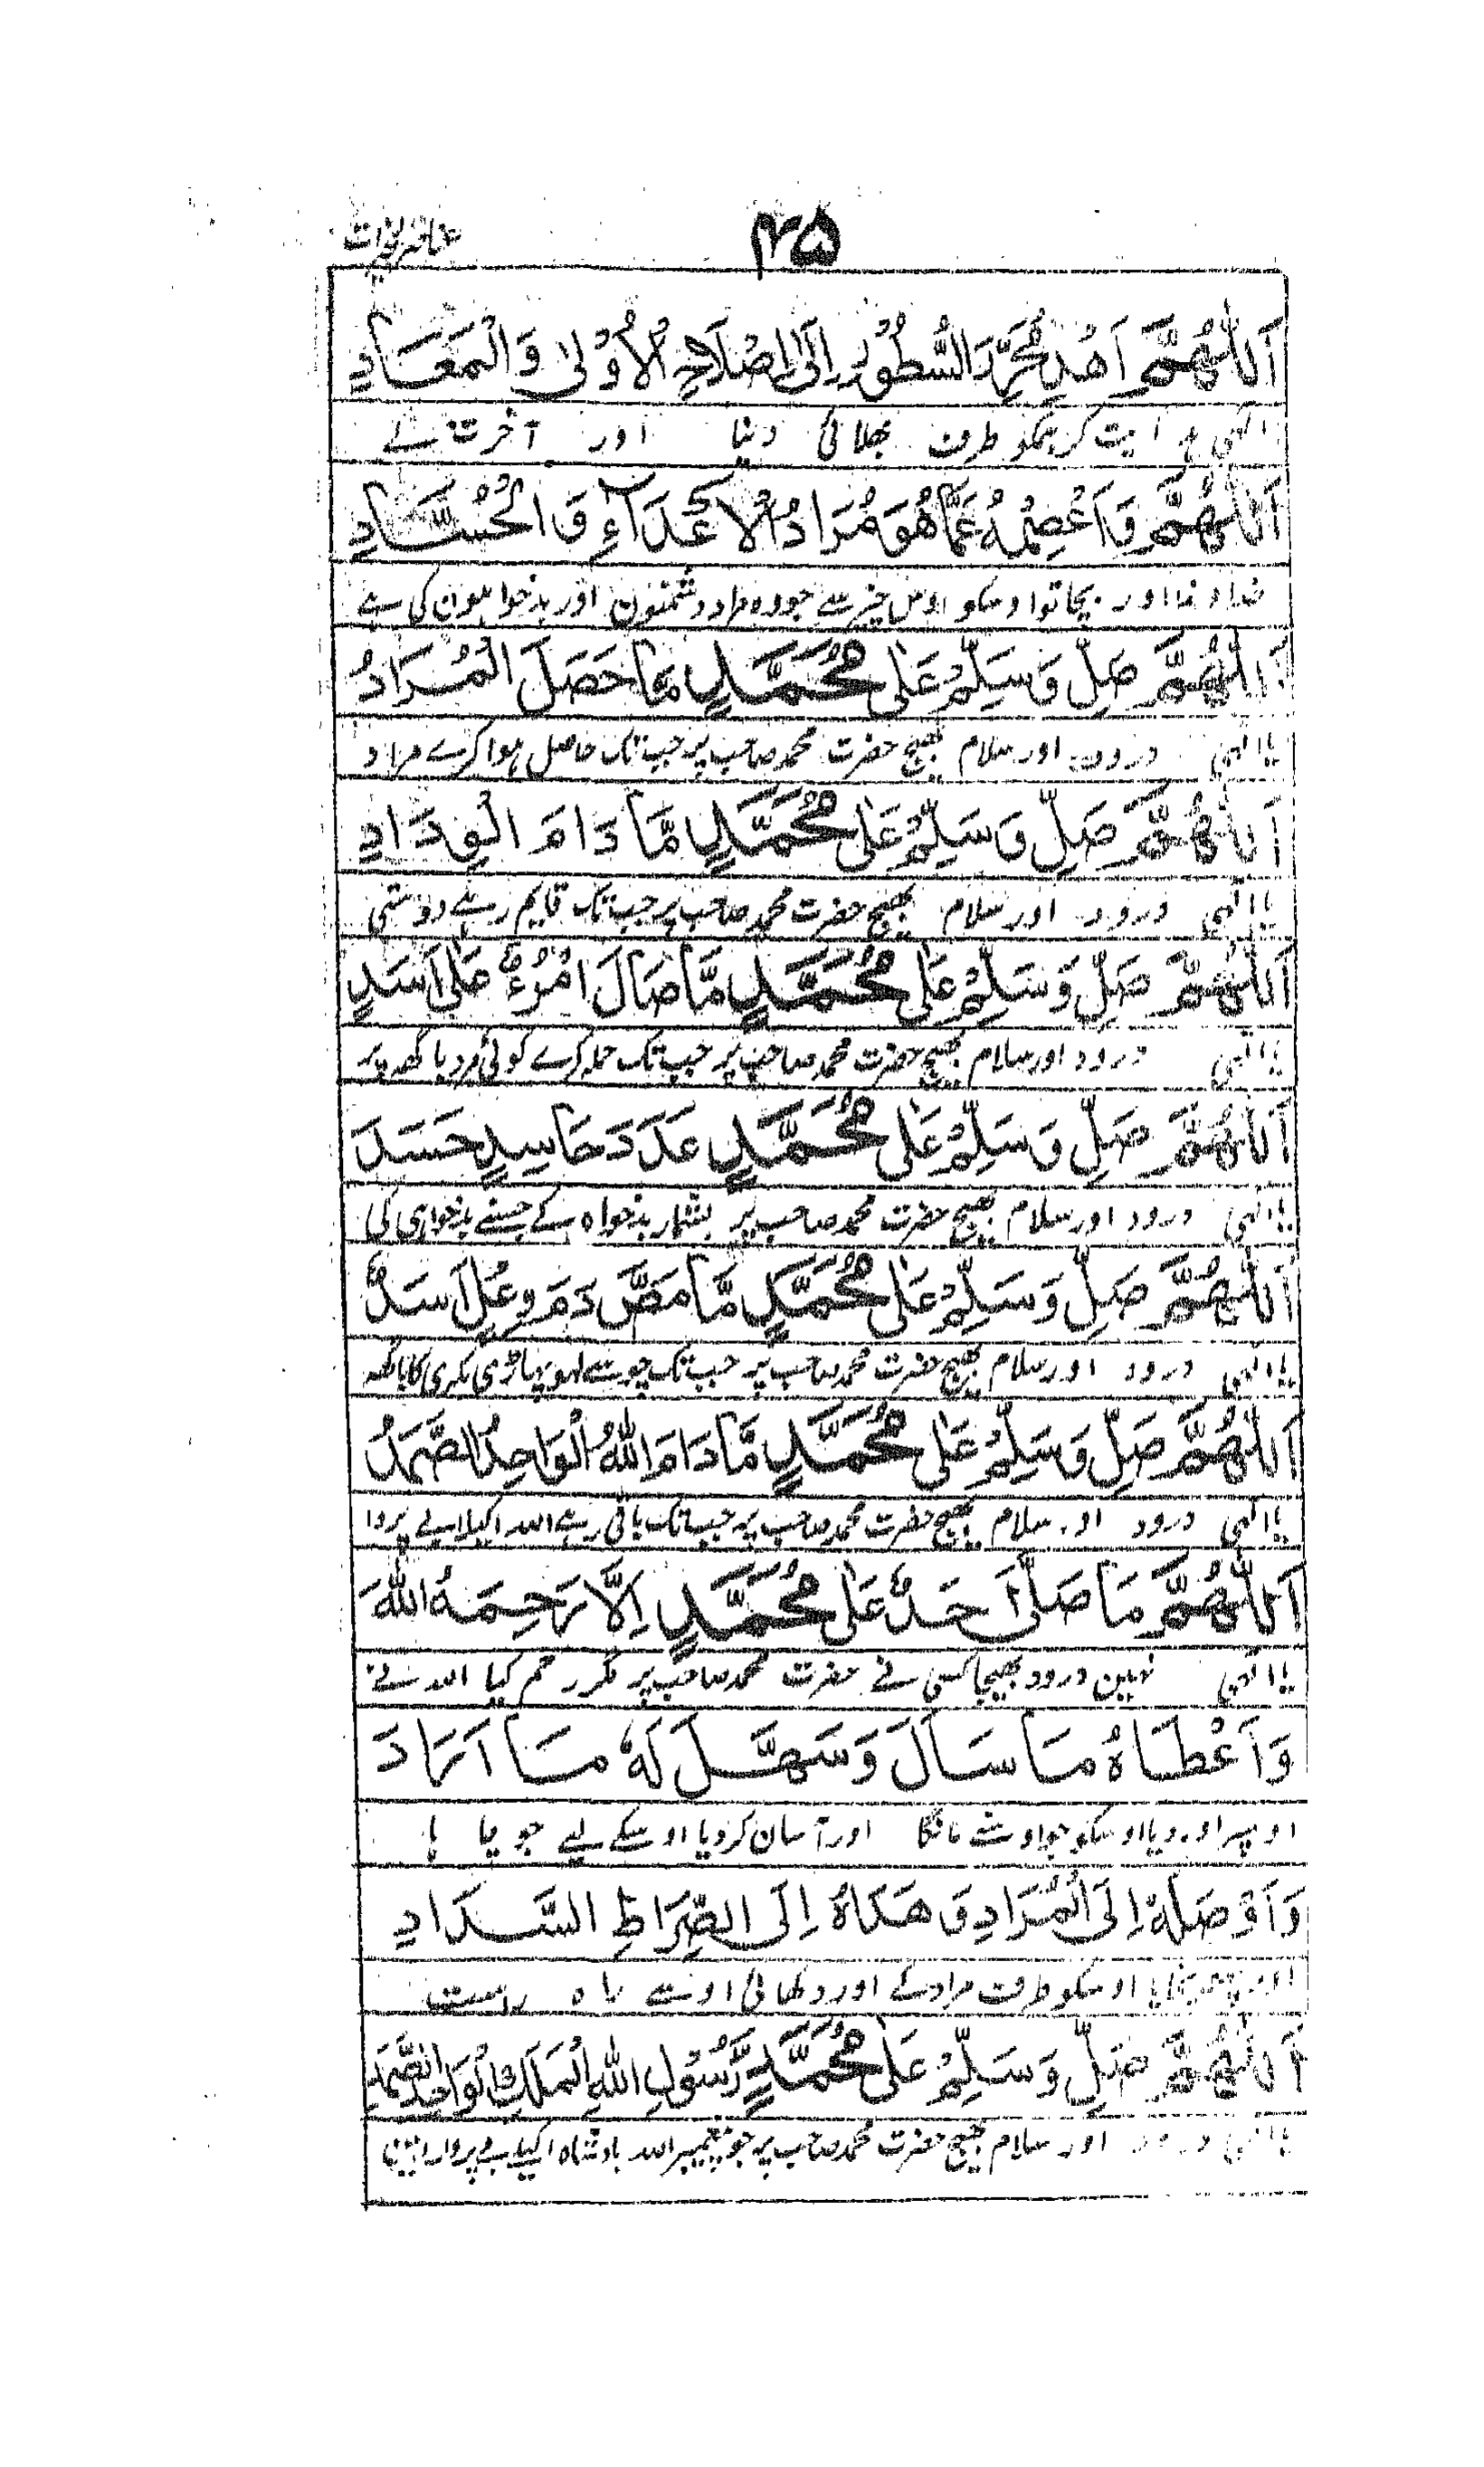 ۲۵
اَللّٰهُمَّ اَهْدِ مُحَرِّرَ السُّطُوْرِ اِلٰی اِصْلَاحِ الْاُوْلٰی وَ الْمَعَادِ
الٰہی ہدایت کر ہمکو طرف بھلائی دنیا اور آخرت کے
اَللّٰهُمَّ وَ اَعْصِمْهُ عَمَّا هُوَ مُرَادُ الْاَعْدَآءِ وَ الْحُسَّادِ
خداوندا اور بچا تو اوسکو اوس چیز سے جو وہ مراد دشمنون اور بدخواہون کی ہے
اَللّٰهُمَّ صَلِّ وَسَلِّمْ عَلٰی مُحَمَّدٍ مَّا حَصَلَ الْمُرَادُ
یا الٰہی درود اور سلام بھیج حضرت محمد صاحب پر جب تک حاصل ہوا کرے مراد
اَللّٰهُمَّ صَلِّ وَسَلِّمْ عَلٰی مُحَمَّدٍ مَّا دَامَ الْوِدَادِ
یا الٰہی درود اور سلام بھیج حضرت محمد صاحب پر جب تک قایم رہے دوستی
اَللّٰهُمَّ صَلِّ وَسَلِّمْ عَلٰی مُحَمَّدٍ مَّا صَالَ امْرُءٌ عَلٰی اَسَدٍ
یا الٰہی درود اور سلام بھیج حضرت محمد صاحب پر جب تک حملہ کرے کوئی مرد باگھہ پر
اَللّٰهُمَّ صَلِّ وَسَلِّمْ عَلٰی مُحَمَّدٍ عَدَدَ حَاسِدٍ حَسَدَ
یا الٰہی درود اور سلام بھیج حضرت محمد صاحب پر بشمار بدخواہ کے جسنے بدخواہی کی
اَللّٰهُمَّ صَلِّ وَسَلِّمْ عَلٰی مُحَمَّدٍ مَّا مَصَّ دَمَ وِعْلٍ اَسَدٌ
یا الٰہی درود اور سلام بھیج حضرت محمد صاحب پر جب تک چوسے لہو پہاڑی بکری کا باگھہ
اَللّٰهُمَّ صَلِّ وَسَلِّمْ عَلٰی مُحَمَّدٍ مَّا دَامَ اللّٰهُ الْوَاحِدُ الصَّمَدُ
یا الٰہی درود اور سلام بھیج حضرت محمد صاحب پر جب تک باقی رہے اللہ اکیلا بے پروا
اَللّٰهُمَّ مَا صَلّٰی اَحَدٌ عَلٰی مُحَمَّدٍ اِلَّا رَحِمَهُ اللّٰهُ
یا الٰہی نہین درود بھیجا کسی نے حضرت محمد صاحب پر مگر رحم کیا اللہ نے
وَ اَعْطَاهُ مَا سَالَ وَ سَهَّلَ لَهٗ مَا اَرَادَ
اوسپر اور دیا اوسکو جو اوسنے مانگا اور آسان کردیا اوسکے لیے جو چاہا
وَ اَوْصَلَهٗ اِلَی الْمُرَادِ وَ هَدَاهُ اِلَی الصِّرَاطِ السَّدَادِ
اور پہنچایا اوسکو طرف مراد کے اور دکھائی اوسے راہ راست
اَللّٰهُمَّ صَلِّ وَسَلِّمْ عَلٰی مُحَمَّدٍ رَّسُوْلِ اللّٰهِ الْمَلِكِ الْوَاحِدِ الصَّمَدِ
یا الٰہی درود اور سلام بھیج حضرت محمد صاحب پر جو پیغمبر اللہ بادشاہ اکیلے بے پروا